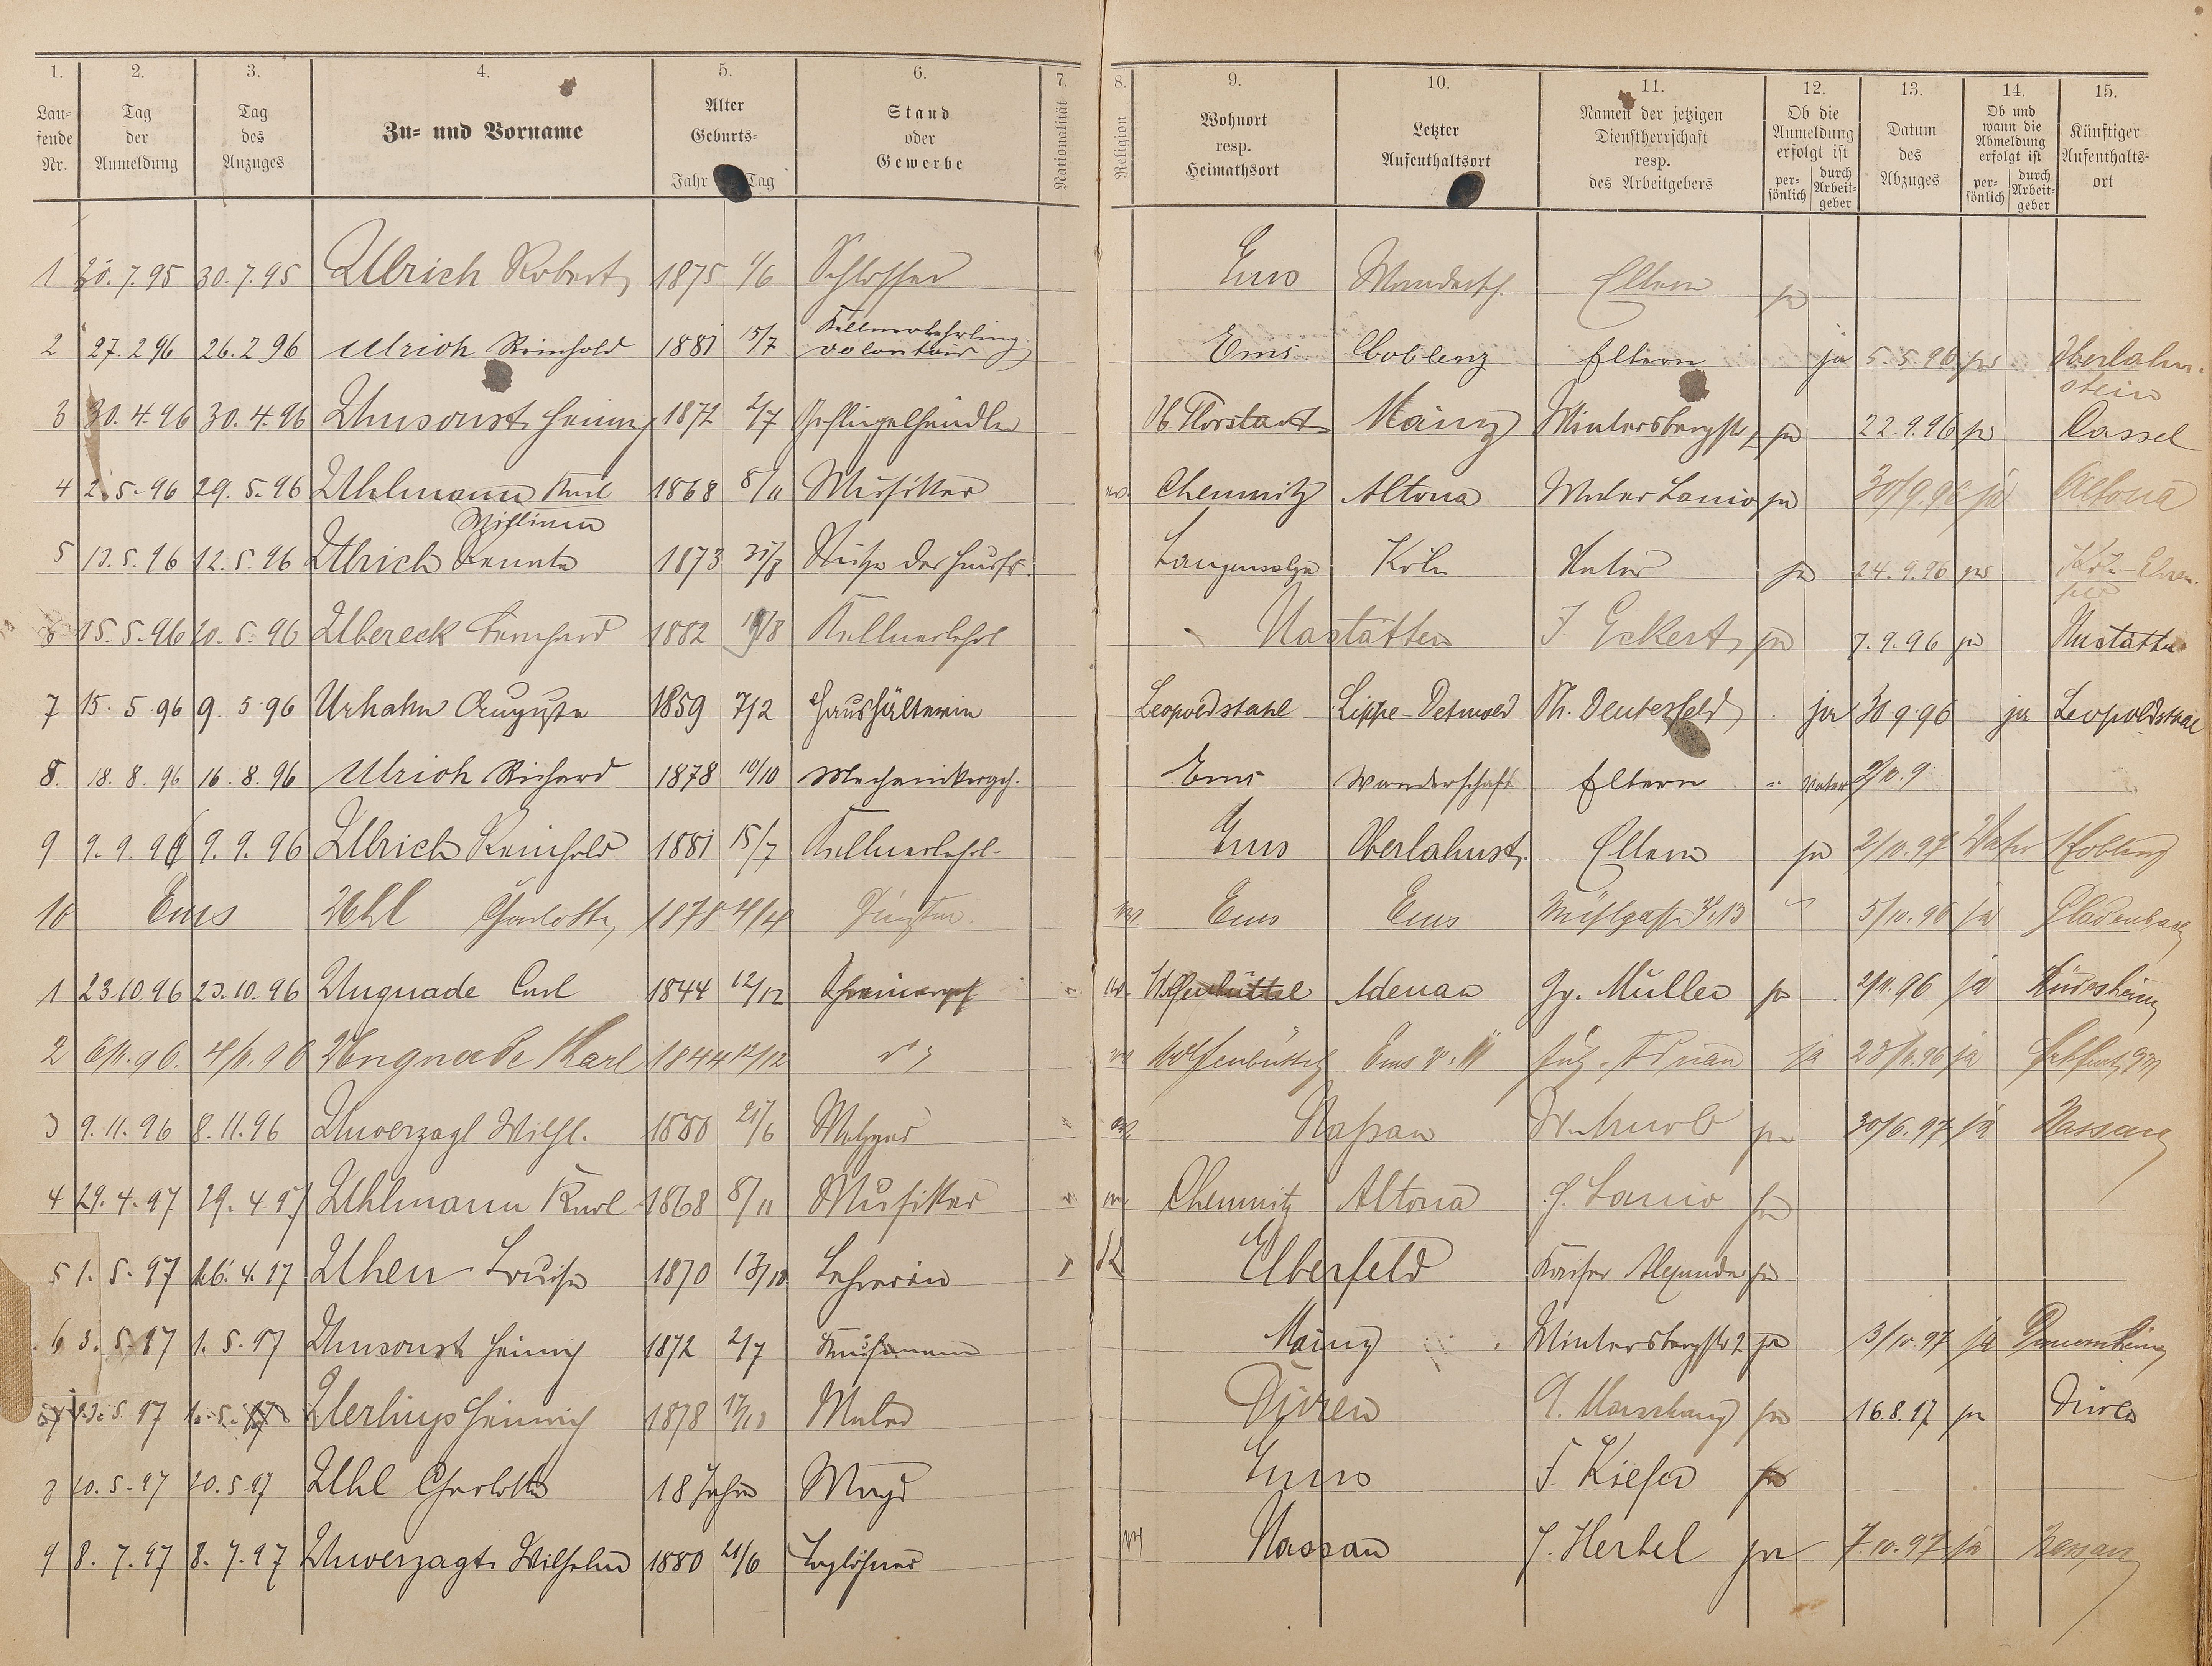 1. 2. 3. 4. 5. 6. 7. 8. 9. 10. 11. 12. 13. 14. 15.
Lau-
fende
Nr.
Tag
der
Anmeldung
Tag
des
Anzuges
Zu- und Vorname
Alter
Geburts-
Jahr Tag
Stand
oder
Gewerbe
Nationalität
Religion
Wohnort
resp.
Heimathsort
Letzter
Aufenthaltsort
Namen der jetzigen
Dienstherrschaft
resp.
des Arbeitgebers
Ob die
Anmeldung
erfolgt ist
per-
sönlich
durch
Arbeit-
geber
Datum
des
Abzuges
Ob und
wann die
Abmeldung
erfolgt ist
per-
sönlich
durch
Arbeit-
geber
Künftiger
Aufenthalts-
ort
1 30.7.95 30.7.95 Ulrich Robert 1875 1/6 Schlosser Ems Wandersch. Eltern ja
Kellnerlehrling
2 27.2 96 26.2 96 Ulrich Reinhold 1881 15/7 volontair Ems Coblenz Eltern ja 5.5.96 ja Oberlahn-
stein
3 30.4.96 30.4.96 Umsonst Heinrich 1872 2/7 Geflügelhändler Ob. Florstadt Mainz Wintersbergstr 2 ja 22.9.96 ja Cassel
4 5.96 29.5.96 Uhlmann Karl 1868 8/11 Musiker Chemnitz Altona Lanio ja 30/9.96 ja Altona
5 13.5.96 12.5.96 Ulrich 1873 Stütze der Hausfr. Langensalza Köln Vater ja 24.9.96 ja Köln-Ehren-
feld
6 15.5.96 10.5.96 Ubereck Bernhard 1882 Kellnerlehrl Nastätten J Eckert ja 7.9.96 ja Nastätten
7 15.5.96 9.5.96 Urhahn Auguste 1859 7/2 Haushälterin Leopoldstahl Lippe-Detmold Th. Deutesfeld ja 30.9.96 ja Leopoldstal
8. 18.8.96 16.8.96 Ulrich Richard 1878 10/10 Mechanikergeh. Ems Wanderschaft Eltern Vater 2/10.9
9 9.9.96 9.9.96 Ulrich Reinhold 1881 15/7 Kellnerlehrl. Ems Oberlahnst. Eltern ja 2/10.97 Vater Koblenz
10 Ems Uhl Charlotte 1878 4/4 Ems Ems Mühlgasse 13 5/10.96 ja Gladenbach
1 23.10.96 23.10.96 Ungnade Carl 1844 12/12 Wolfenbüttel Adenau Gg. Müller ja 2/11.96 ja Rüdesheim
2 6/11.96. 4/11.96 Ungnade Karl 1844 12/12 Wolfenbüttel Ems ja 23/11.96 ja
3 9.11.96 8.11.96 Unverzagt Wilh. 1880 21/6 Metzger Nassau ja 30/6.97 ja Nassau
4 29.4.97 29.4.97 Uhlmann Karl 1868 8/11 Musiker Chemnitz Altona Lanio ja
5 1.5.97 26.4.97 Uhen Louise 1870 13/10 Lehrerin Elberfeld Kaiser Alexander ja
6 3.5.97 1.5.97 Umsonst Heinrich 1872 2/7 Kaufmann Mainz Wintersbergstr 2 ja 3/10.97 ja
7 5.97 Uerlings Heinrich 1878 Maler Düren ja 16.8.97 ja Düren
8 10.5.97 10.5.97 Uhl Charlotte 18 Jahre Magd Ems F. Kiefer ja
9 8.7.97 8.7.97 Unverzagt Wilhelm 1880 21/6 Taglöhner Nassau J. Hertel ja 7.10.97 ja Nassau